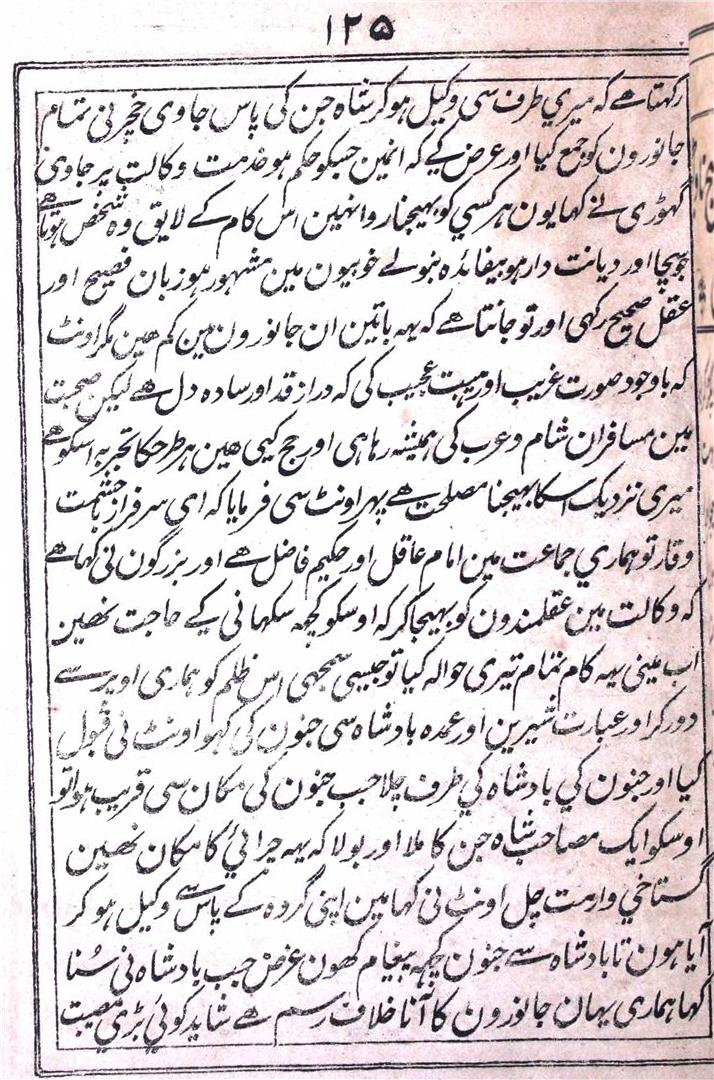 ۱۲۵
رکہتا ھے کہ میري طرف سی وکیل ہو کر شاہ جن کی پاس جاوی خچر نی تمام
جانورون کو جمع کیا اور عرض کیے کہ انمین جسکو حکم ہو خدمت وکالت پر جاوی
گہوڑی نے کہا یون ہر کسي کو بہیجنا روا نہین اس کام کے لایق وہ شخص ہوتا ھے
جو سچا اور دیانت دار ہو بیفایدہ نبولے خوبیون مین مشہور ہو زبان فصیح اور
عقل صحیح رکہی اور تو جانتا ھے کہ یہہ باتین ان جانورون مین کم ھین مگر اونٹ
کہ باوجود صورت غریب اور ہیبت عجیب کی کہ دراز قد اور سادہ دل ھے لیکن صحبت
مین مسافران شام و عرب کی ہمیشہ رہا ہی اور حج کیی ھین ہر طرحکا تجربہ اسکو ھے
میری نزدیک اسکا بہیجنا مصلحت ھے پہر اونٹ سی فرمایا کہ ای سرفراز باحشمت
وقار تو ہماري جماعت مین امام عاقل اور حکیم فاضل ھے اور بزرگون نی کہا ھے
کہ وکالت مین عقلمندون کو بہیجا کر کہ اوسکو کچہہ سکہانی کے حاجت نھین
اب مینی یہہ کام تمام تیری حوالہ کیا تو جیسی سمجہی اس ظلم کو ہماری اوپر سے
دور کر اور عبارت شیرین اور عمدہ بادشاہ سی جنون کی کہو اونٹ نی قبول
کیا اور جنون کي بادشاہ کي طرف چلا جب جنون کی مکان سی قریب ہوا تو
اوسکو ایک مصاحب شاہ جن کا ملا اور بولا کہ یہہ چرائي کا مکان نھین
گستاخي وار مت چل اونٹ نی کہا مین اپنی گروہ کے پاس سے وکیل ہو کر
آیا ہون تا بادشاہ سے جنون کچہہ پیغام کھون غرض جب بادشاہ نی سُنا
کہا ہماری یہان جانورون کا آنا خلاف رسم ھے شاید کوئي بڑي مصیبت